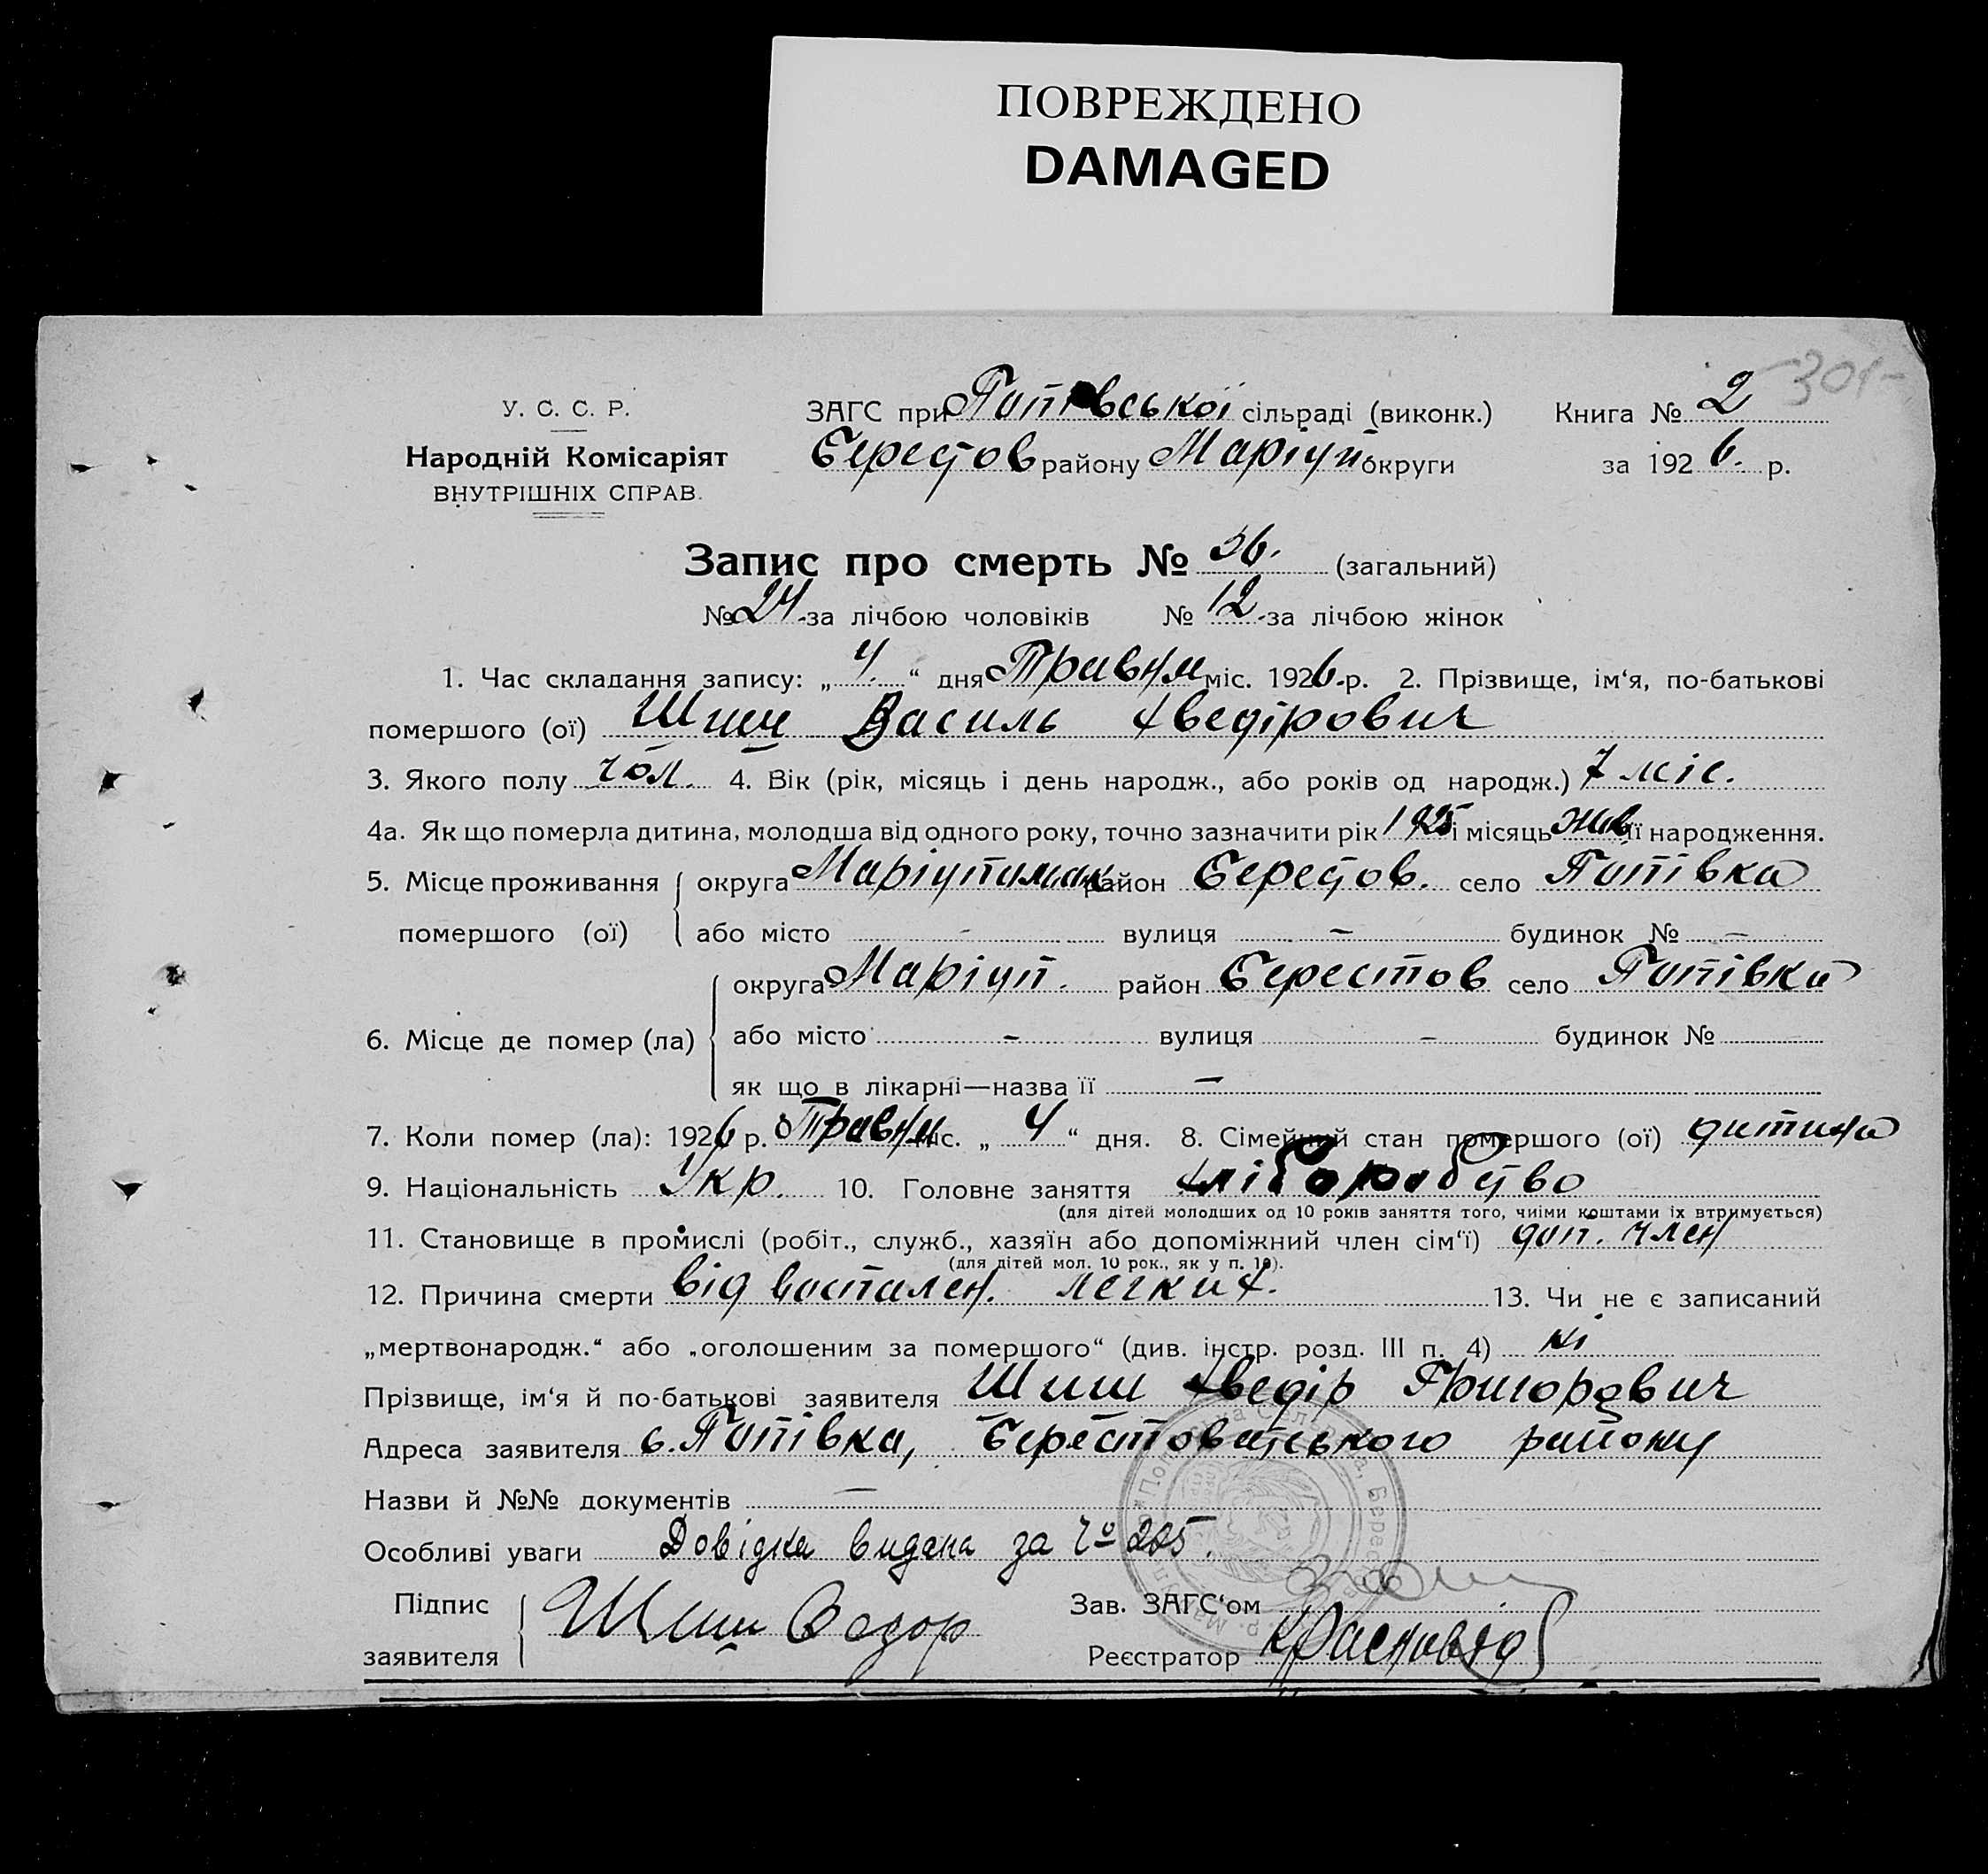 ПОВРЕЖДЕНО
DAMAGED
301-
У. С. С. Р.
Народній Комісаріят
ВНУТРІШНІХ СПРАВ.
ЗАГС при Попівської сільраді (виконк.) Книга № 2
Берестов району Маріуп. округи за 1926. р.
Запис про смерть № 36. (загальний)
№ 24. за лічбою чоловіків № 12. за лічбою жінок
1. Час складання запису: „4.“ дня Травня міс. 1926. р. 2. Прізвище, ім‘я, по-батькові
помершого (ої) Шиш Василь Хведірович
3. Якого полу чол. 4. Вік (рік, місяць і день народж., або років од народж.) 7 міс.
4а. Як що померла дитина, молодша від одного року, точно зазначити рік 1925 і місяць її народження.
5. Місце проживання помершого (ої) округа район Берестов. село Попівка
або місто - вулиця - будинок № -
6. Місце де помер (ла) округа Маріуп. район Берестов село Попівка
або місто - вулиця - будинок №
як що в лікарні—назва її —
7. Коли помер (ла): 1926 р. Травня міс. „4“ дня. 8. Сімейний стан помершого (ої) дитина
9. Національність Укр. 10. Головне заняття хліборобство
(для дітей молодших од 10 років заняття того, чиїми коштами їх втримується)
11. Становище в промислі (робіт., служб., хазяїн або допоміжний член сім‘ї) доп. член
(для дітей мол. 10 рок., як у п. 10).
12. Причина смерти від воспален. легких. 13. Чи не є записаний
„мертвонародж.“ або „оголошеним за помершого“ (див. інстр. розд. III п. 4) ні
Прізвище, ім‘я й по-батькові заявителя Шиш Хведір Григорович
Адреса заявителя с. Попівка, Берестоватського району
Назви й №№ документів —
Особливі уваги Довідка видана за
Підпис заявителя Шиш Федор
Зав. ЗАГС‘ом
Реєстратор